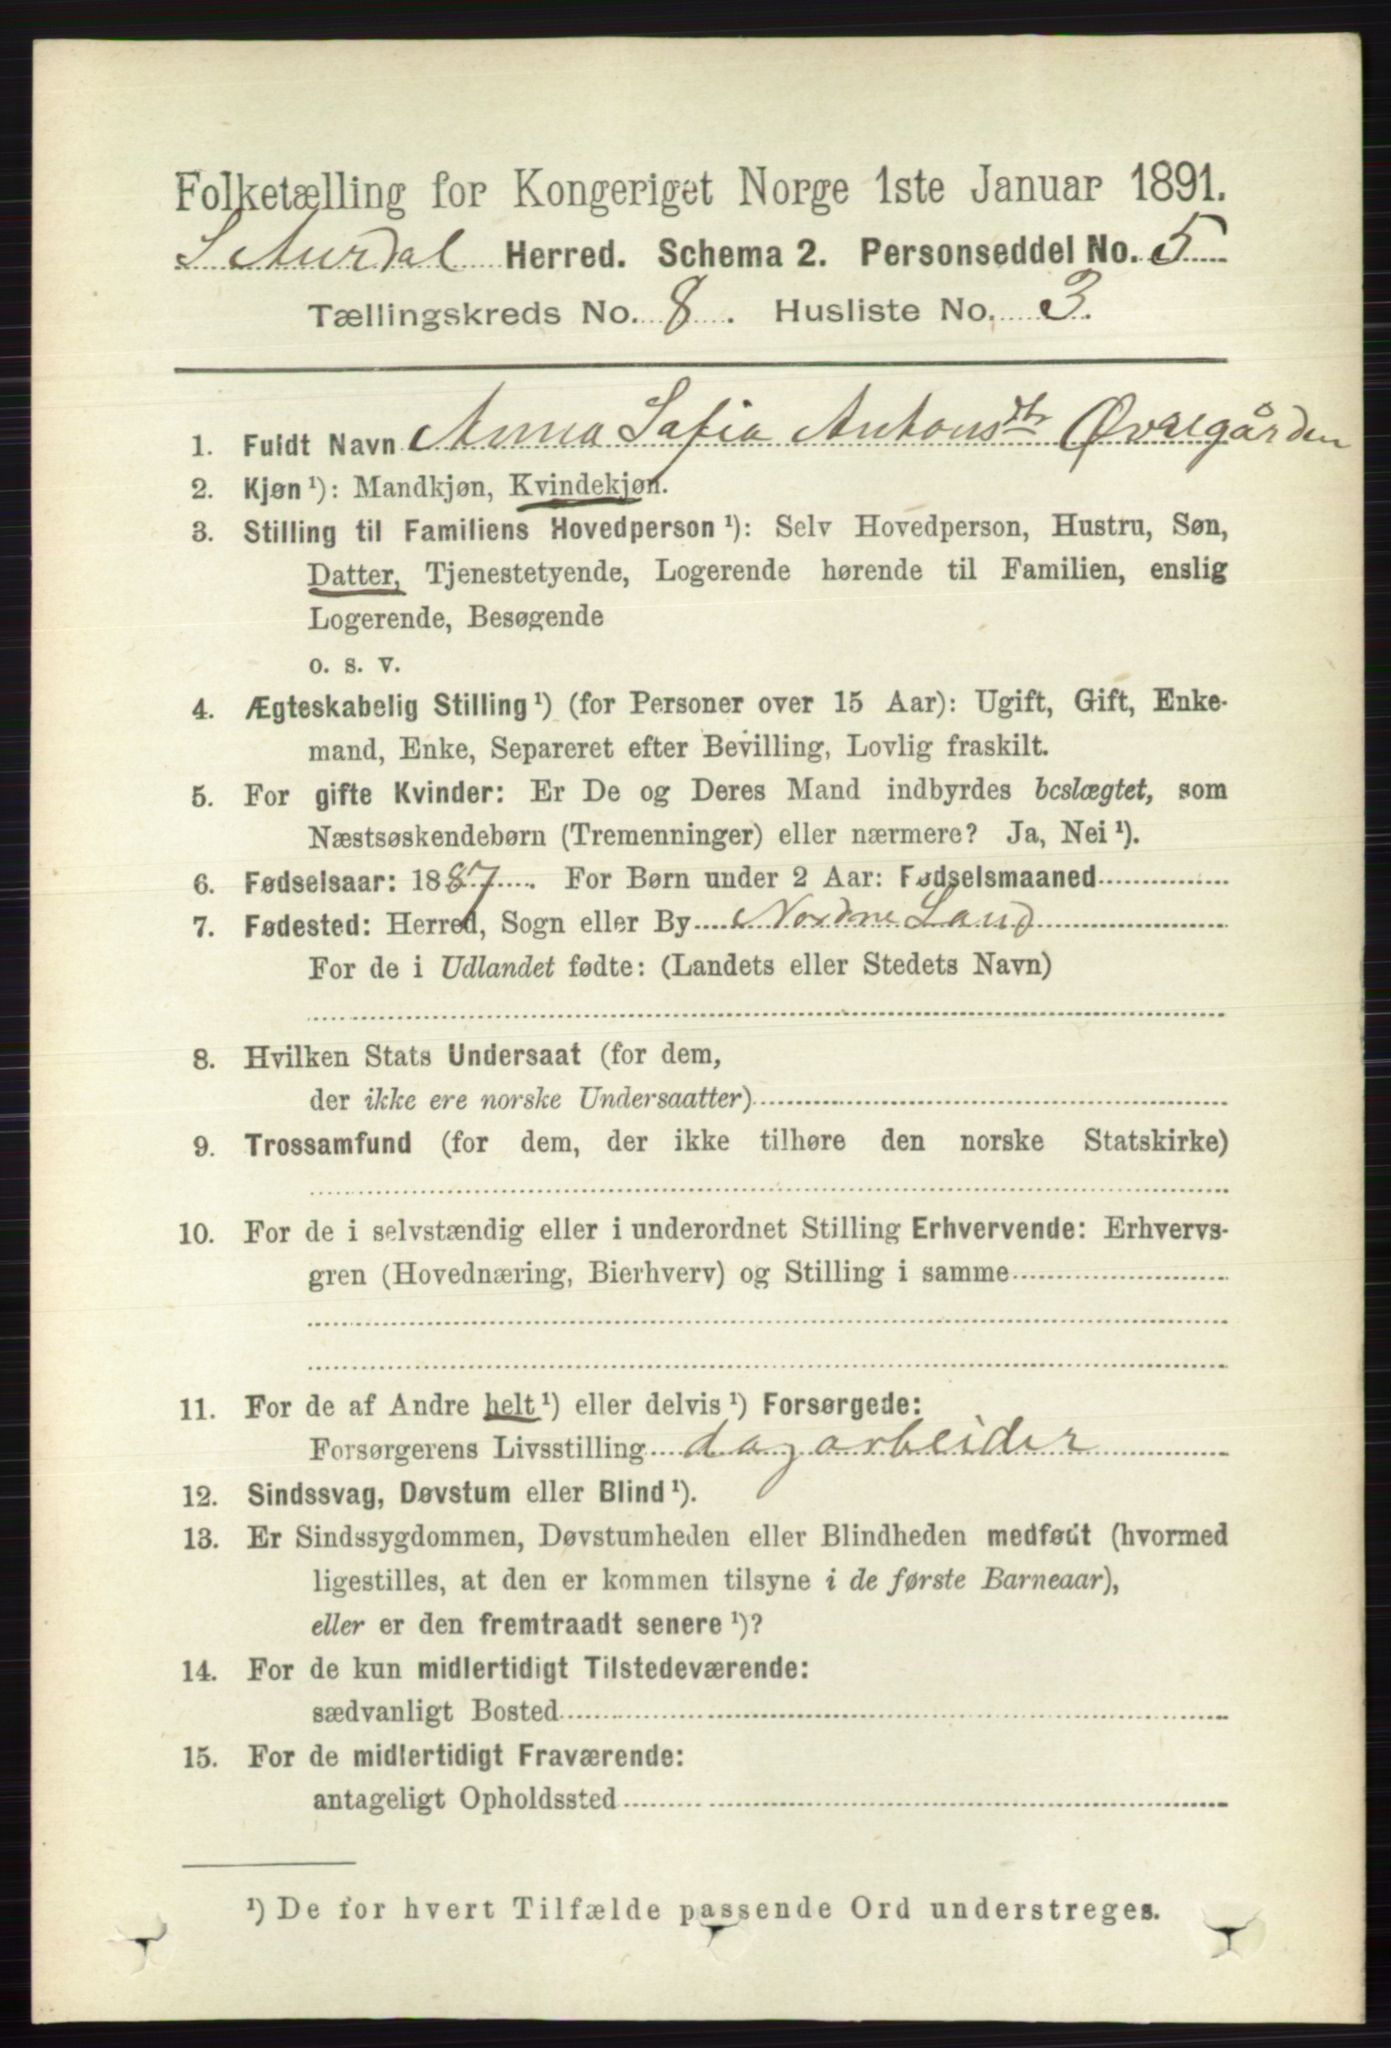 Folketælling for Kongeriget Norge 1ste Januar 1891.
S Aurdal Herred. Schema 2. Personseddel No. 5
Tællingskreds No. 8. Husliste No. 3.
1. Fuldt Navn Anna Safia Antonsdtr Øvregården
2. Kjøn ¹): Mandkjøn, Kvindekjøn.
3. Stilling til Familiens Hovedperson ¹): Selv Hovedperson, Hustru, Søn,
Datter, Tjenestetyende, Logerende hørende til Familien, enslig
Logerende, Besøgende
o. s. v.
4. Ægteskabelig Stilling ¹) (for Personer over 15 Aar): Ugift, Gift, Enke-
mand, Enke, Separeret efter Bevilling, Lovlig fraskilt.
5. For gifte Kvinder: Er De og Deres Mand indbyrdes beslægtet, som
Næstsøskendebørn (Tremenninger) eller nærmere? Ja, Nei ¹).
6. Fødselsaar: 1887. For Børn under 2 Aar: Fødselsmaaned
7. Fødested: Herred, Sogn eller By Nordre Land
For de i Udlandet fødte: (Landets eller Stedets Navn)
8. Hvilken Stats Undersaat (for dem,
der ikke ere norske Undersaatter)
9. Trossamfund (for dem, der ikke tilhøre den norske Statskirke)
10. For de i selvstændig eller i underordnet Stilling Erhvervende: Erhvervs-
gren (Hovednæring, Bierhverv) og Stilling i samme
11. For de af Andre helt ¹) eller delvis ¹) Forsørgede:
Forsørgerens Livsstilling dagarbeider
12. Sindssvag, Døvstum eller Blind ¹).
13. Er Sindssygdommen, Døvstumheden eller Blindheden medfødt (hvormed
ligestilles, at den er kommen tilsyne i de første Barneaar),
eller er den fremtraadt senere ¹)?
14. For de kun midlertidigt Tilstedeværende:
sædvanligt Bosted
15. For de midlertidigt Fraværende:
antageligt Opholdssted
¹) De for hvert Tilfælde passende Ord understreges.